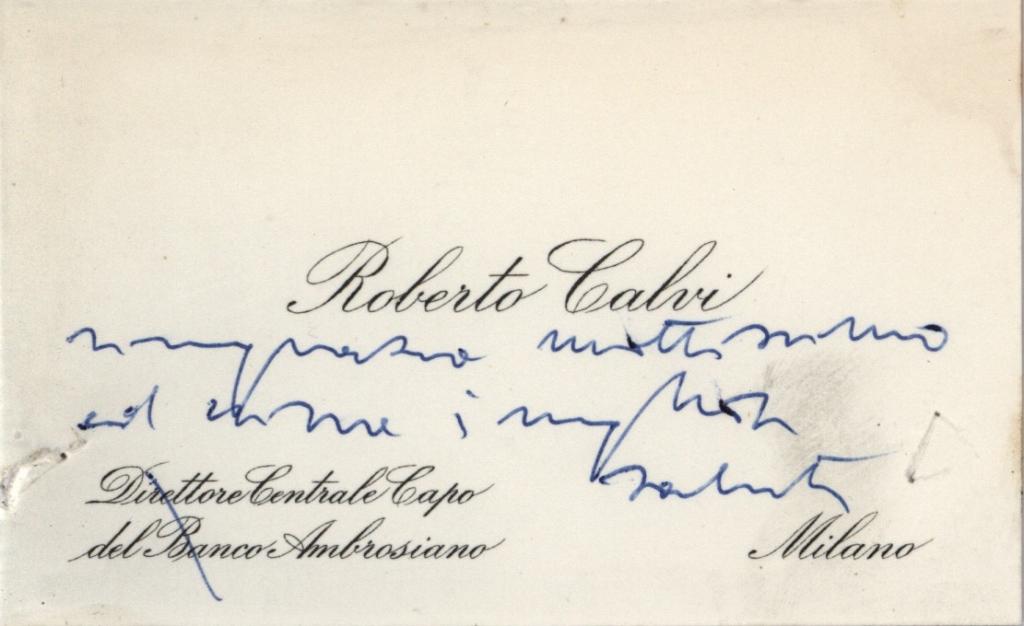 Roberto Calvi
ringrazia moltissimo
ed invia i migliori
saluti
Direttore Centrale Capo
del Banco Ambrosiano
Milano